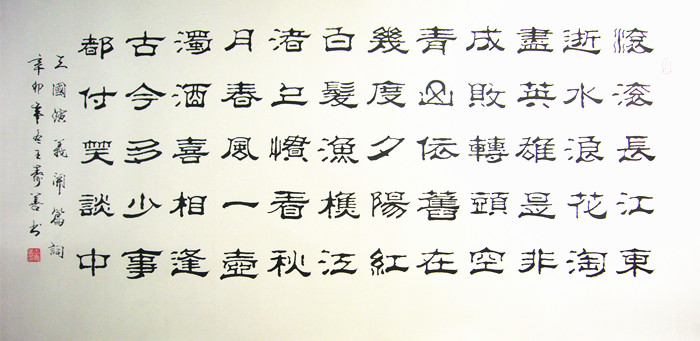 滾滾長江東
逝水浪花淘
盡英雄是非
成敗轉頭空
青山依舊在
幾度夕陽紅
白髮漁樵江
渚上慣看秋
月春風一壺
濁酒喜相逢
古今多少事
都付笑談中
三國演義開篇詞
辛卯年冬王壽善书